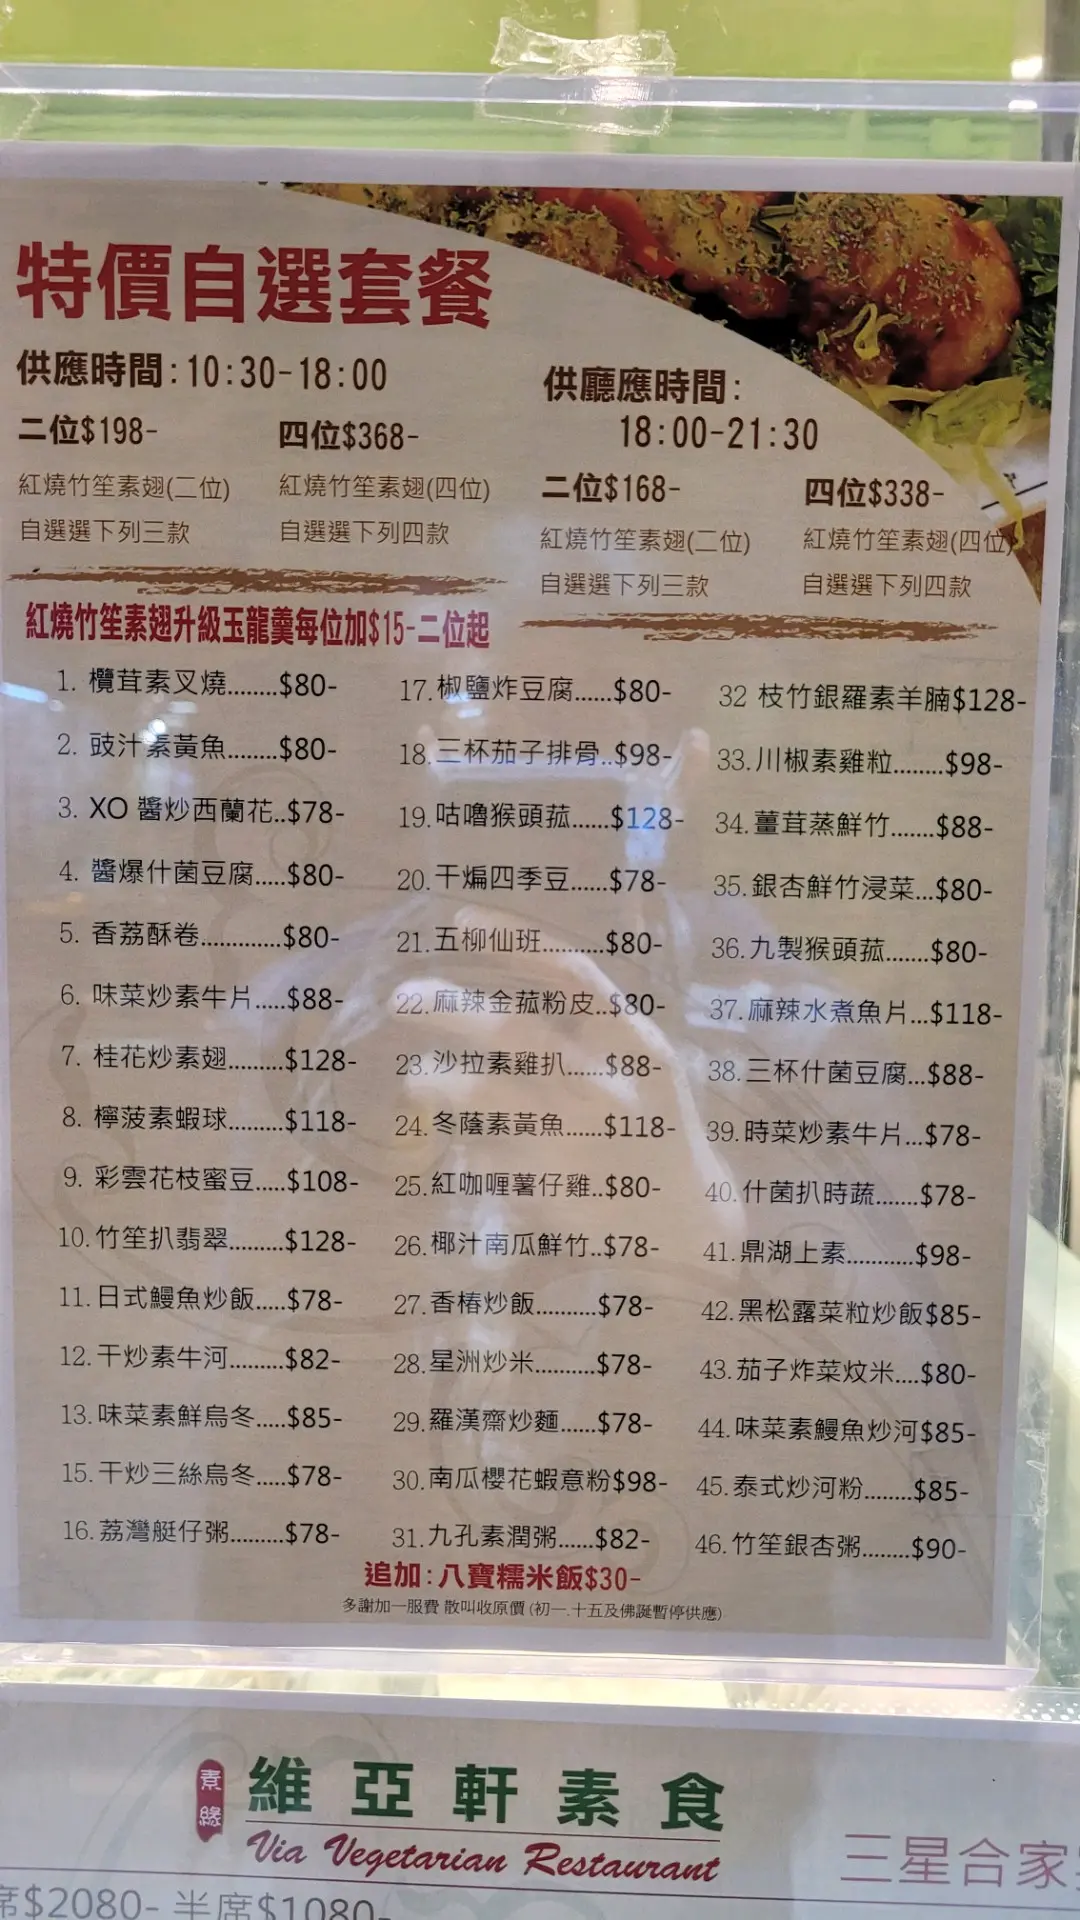 特價自選套餐
供應時間:10:30-18:00
二位$198-
紅燒竹笙素翅(二位)
自選選下列三款
四位$368-
紅燒竹笙素翅(四位)
自選選下列四款
供廳應時間:
18:00-21:30
二位$168-
紅燒竹笙素翅(二位)
自選選下列三款
四位$338-
紅燒竹笙素翅(四位)
自選選下列四款
紅燒竹笙素翅升級玉龍羹每位加$15-二位起
1. 欖茸素叉燒........$80-
2. 豉汁素黃魚........$80-
3. XO 醬炒西蘭花..$78-
4. 醬爆什菌豆腐.....$80-
5. 香荔酥卷.............$80-
6. 味菜炒素牛片.....$88-
7. 桂花炒素翅.........$128-
8. 檸菠素蝦球.........$118-
9. 彩雲花枝蜜豆.....$108-
10. 竹笙扒翡翠.........$128-
11. 日式鰻魚炒飯.....$78-
12. 干炒素牛河.........$82-
13. 味菜素鮮烏冬.....$85-
15. 干炒三絲烏冬.....$78-
16. 荔灣艇仔粥.........$78-
17. 椒鹽炸豆腐......$80-
18. 三杯茄子排骨..$98-
19. 咕嚕猴頭菰......$128-
20. 干煸四季豆......$78-
21. 五柳仙班..........$80-
22. 麻辣金菰粉皮..$80-
23. 沙拉素雞扒......$88-
24. 冬蔭素黃魚......$118-
25. 紅咖喱薯仔雞..$80-
26. 椰汁南瓜鮮竹..$78-
27. 香椿炒飯..........$78-
28. 星洲炒米..........$78-
29. 羅漢齋炒麵......$78-
30. 南瓜櫻花蝦意粉$98-
31. 九孔素潤粥......$82-
32 枝竹銀羅素羊腩$128-
33. 川椒素雞粒........$98-
34. 薑茸蒸鮮竹.......$88-
35. 銀杏鮮竹浸菜...$80-
36. 九製猴頭菰.......$80-
37. 麻辣水煮魚片...$118-
38. 三杯什菌豆腐...$88-
39. 時菜炒素牛片...$78-
40. 什菌扒時蔬.......$78-
41. 鼎湖上素...........$98-
42. 黑松露菜粒炒飯$85-
43. 茄子炸菜炆米....$80-
44. 味菜素鰻魚炒河$85-
45. 泰式炒河粉........$85-
46. 竹笙銀杏粥........$90-
追加:八寶糯米飯$30-
多謝加一服費 散叫收原價 (初一.十五及佛誕暫停供應)
素緣
維亞軒素食
Via Vegetarian Restaurant
三星合家
席$2080- 半席$1080-